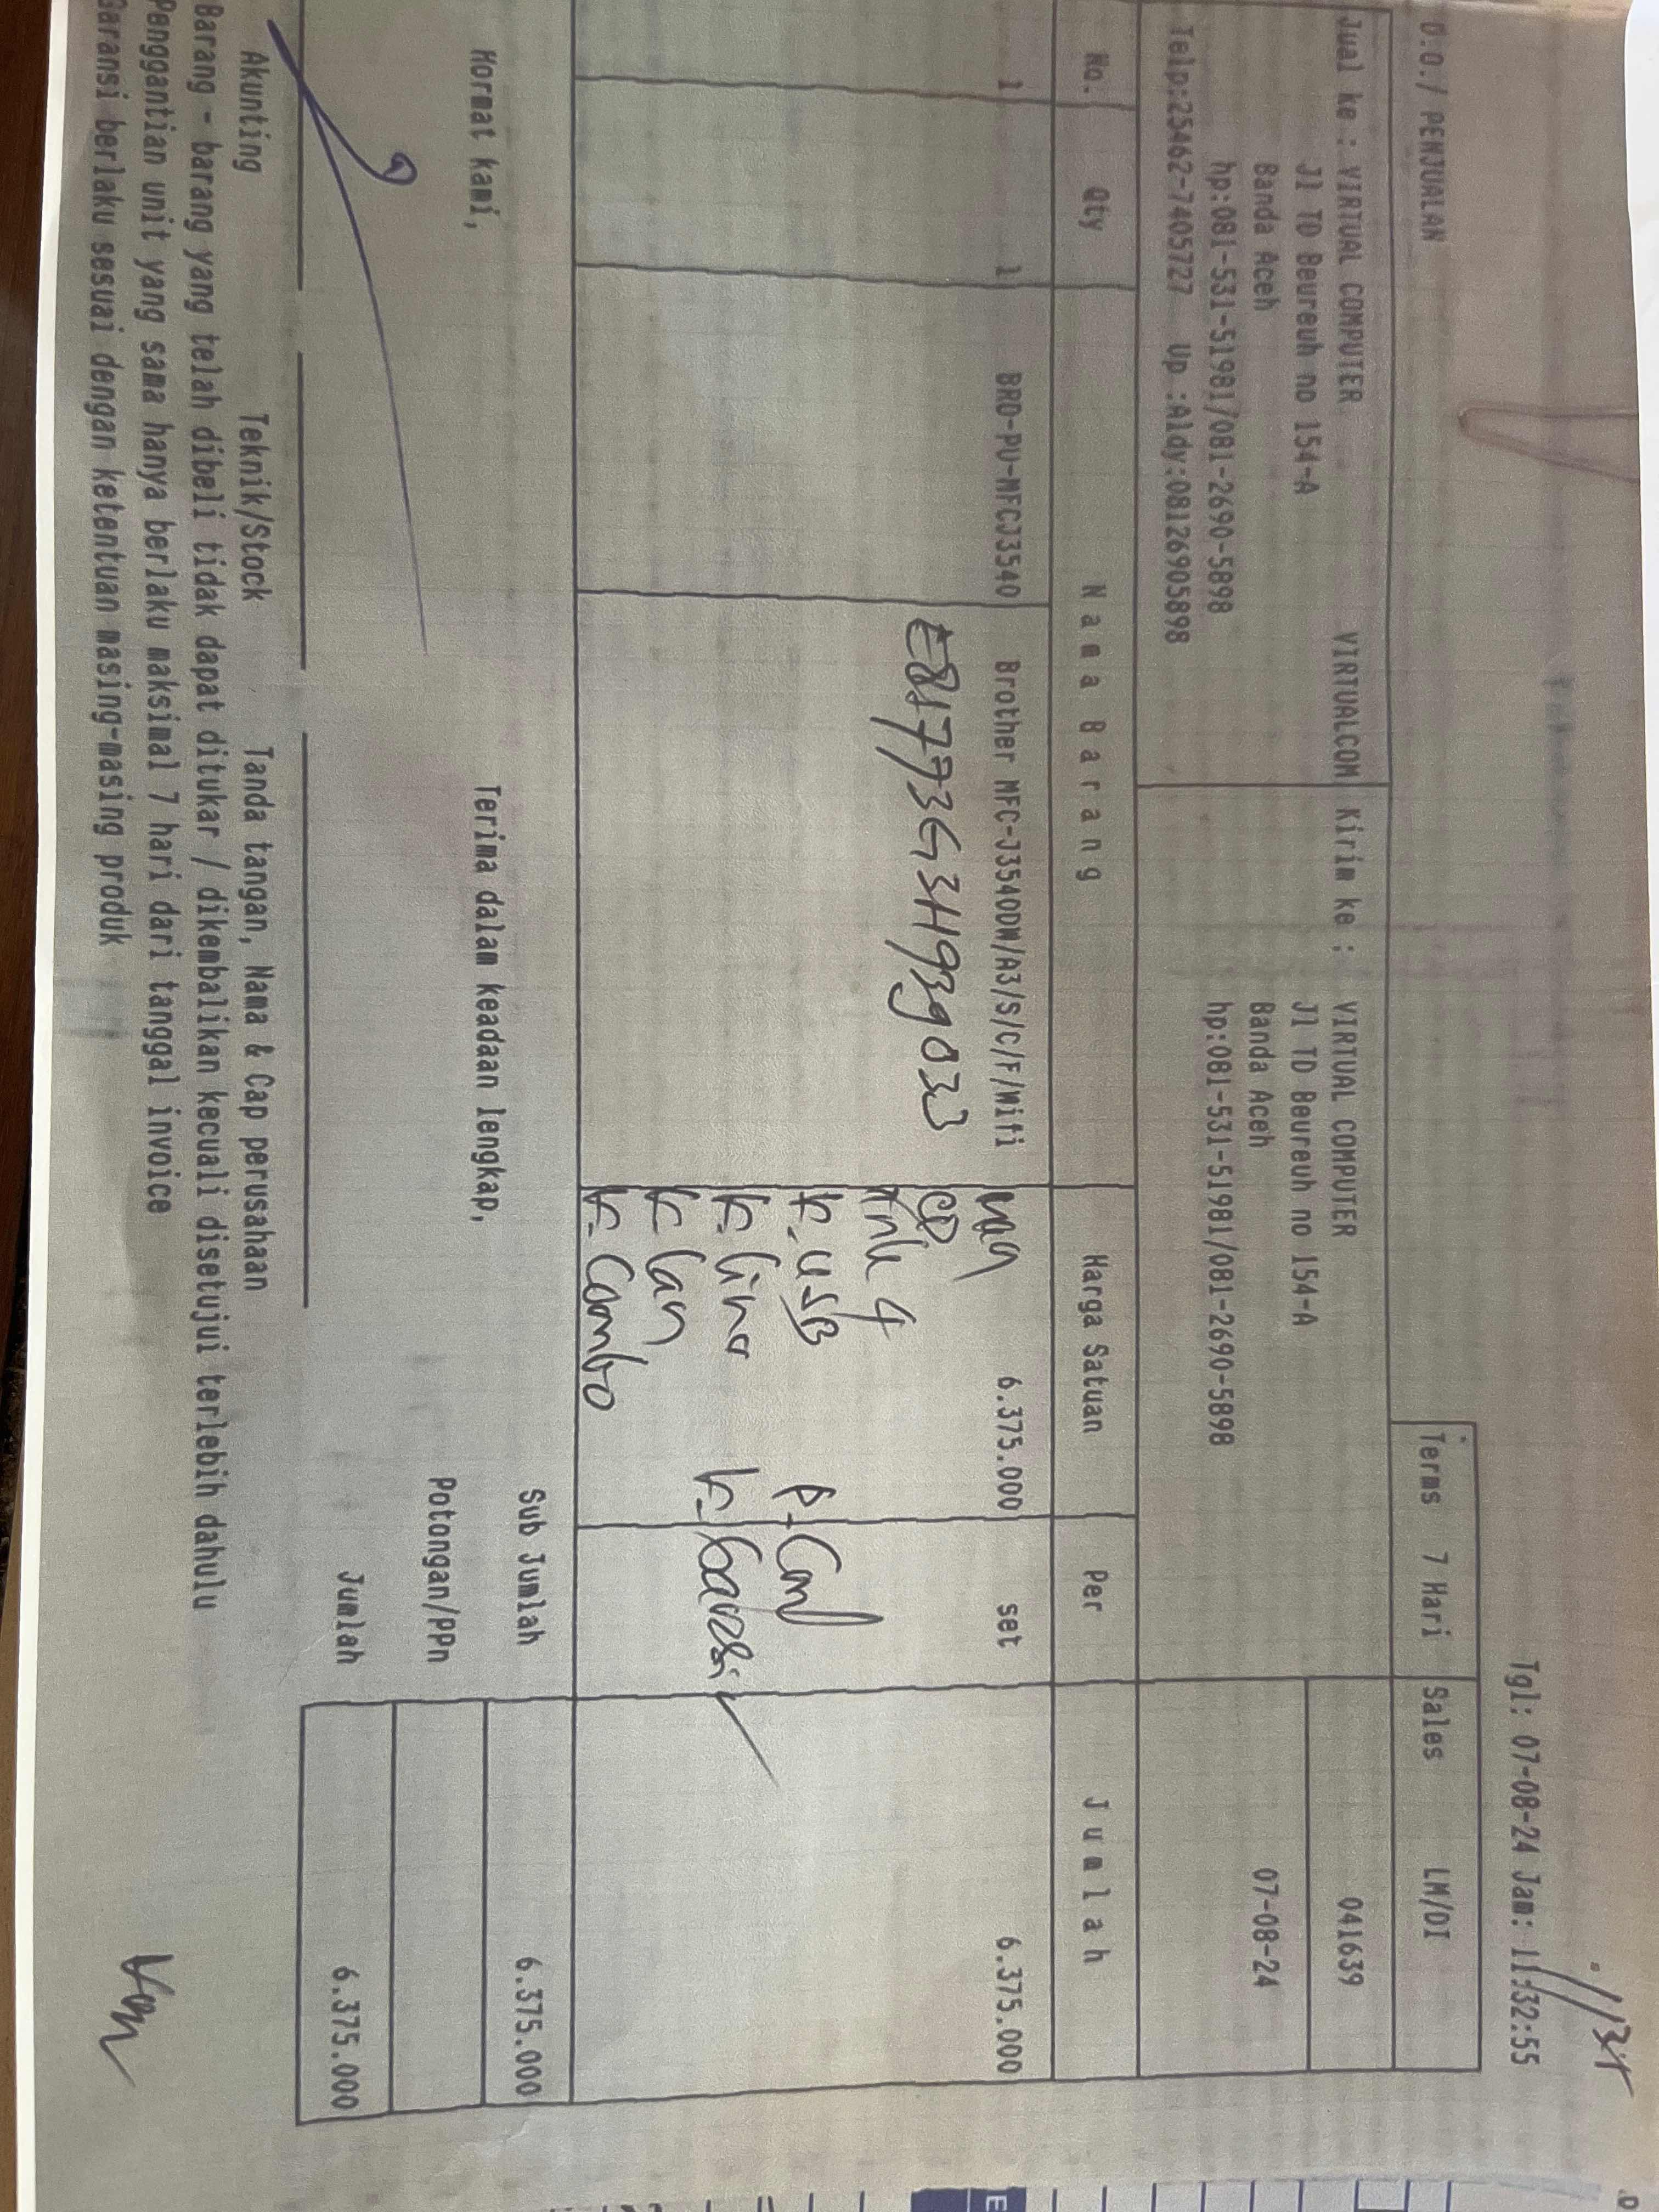 Tgl: 07-08-24 Jam: 11:32:55
D.O./ PENJUALAN
Terms 7 Hari Sales LM/DI
Jual ke : VIRTUAL COMPUTER VIRTUALCOM Kirim ke : VIRTUAL COMPUTER 041639
Jl TD Beureuh no 154-A Jl TD Beureuh no 154-A
Banda Aceh Banda Aceh 07-08-24
hp:081-531-51981/081-2690-5898 hp:081-531-51981/081-2690-5898
Telp:25462-7405727 Up :Aldy:08126905898
No. Qty Nama Barang Harga Satuan Per Jumlah
1 1 BRO-PU-MFCJ3540 Brother MFC-J3540DW/A3/S/C/F/Wifi 6.375.000 set 6.375.000
E81773G3H939033
CD
K-USB
K-Line
K-Lan K-Garansi
K-Combo
Sub Jumlah 6.375.000
Hormat kami, Terima dalam keadaan lengkap,
Potongan/PPn
Jumlah 6.375.000
Akunting Teknik/Stock Tanda tangan, Nama & Cap perusahaan
Barang - barang yang telah dibeli tidak dapat ditukar / dikembalikan kecuali disetujui terlebih dahulu
Penggantian unit yang sama hanya berlaku maksimal 7 hari dari tanggal invoice
Garansi berlaku sesuai dengan ketentuan masing-masing produk